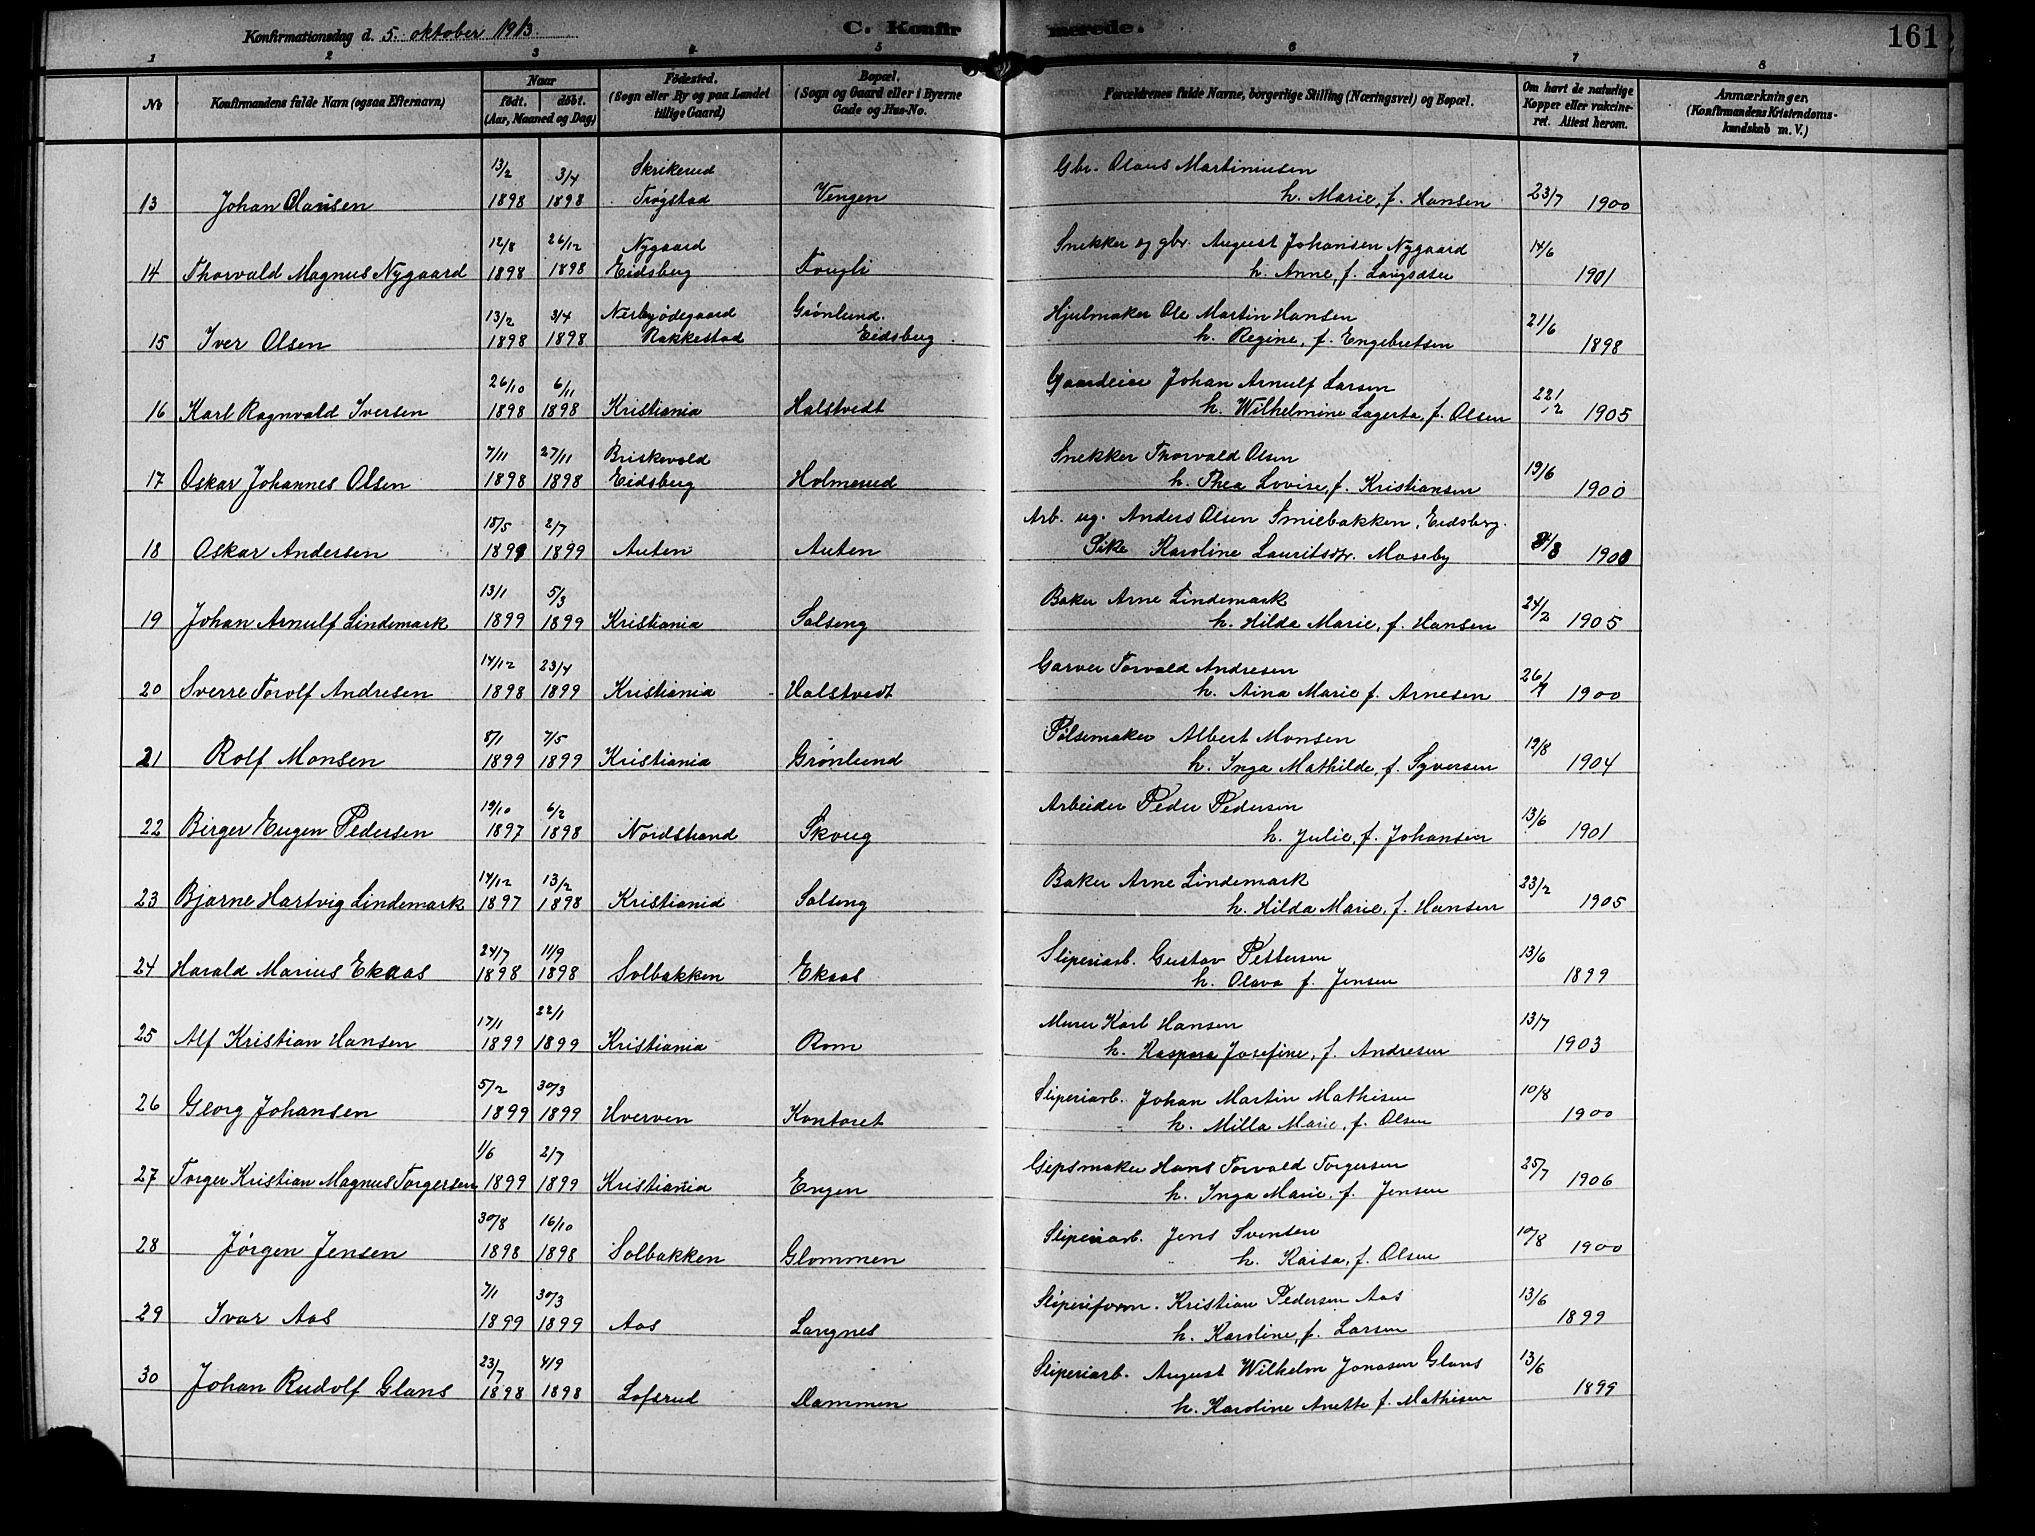 Konfirmationsdag d. 5. oktober 1913. C. Konfirmerede. 161
1 2 3 4 5 6 7 8
No Konfirmandens fulde Navn (ogsaa Efternavn) Naar født. døbt. (Aar, Maaned og Dag) Fødested. (Sogn eller By og paa Landet tillige Gaard) Bopæl. (Sogn og Gaard eller i Byerne Gade og Hus-No. Forældrenes fulde Navne, borgerlige Stilling (Næringsvei) og Bopæl. Om havt de naturlige Kopper eller vakcineret. Attest herom. Anmærkninger. (Konfirmandens Kristendomskundskab m. V.)
13/2 3/4 Skrikerud Gbr. Olaus Martiniusen
13 Johan Olausen 1898 1898 Trøgstad Vengen h. Marie, f. Hansen 23/7 1900
12/8 26/12 Nygaard Snekker og gbr. August Johansen Nygaard 14/6
14 Thorvald Magnus Nygaard 1898 1898 Eidsberg Fougli h. Anne, f. Langsæter 1901
13/2 3/4 Nerbyødegaard Grønlund. Hjulmaker Ole Martin Hansen 21/6
15 Iver Olsen 1898 1898 Rakkestad Eidsberg. h. Regine, f. Engebretsen 1898
26/10 6/11 Gaardeier Johan Arnulf Larsen 22/12
16 Karl Ragnvald Iversen 1898 1898 Kristiania Halstvedt h. Wilhelmine Lagerta, f. Olsen 1905
7/11 27/11 Briskevold Snekker Thorvald Olsen 19/6
17 Oskar Johannes Olsen 1898 1898 Eidsberg Holmerud h. Thea Lovise, f. Kristiansen 1900
18/5 2/7 Arb. ug. Anders Olsen Smiebakken, Eidsberg.
18 Oskar Andersen 1899 1899 Auten Auten Pike Karoline Lauritsdtr. Moseby 1900
13/1 5/3 Baker Arne Lindemark 24/2
19 Johan Arnulf Lindemark 1899 1899 Kristiania Solseng h. Hilda Marie, f. Hansen 1905
14/12 23/4 Garver Torvald Andresen
20 Sverre Torolf Andresen 1898 1899 Kristiania Halstvedt h. Aina Marie f. Arnesen 1900
8/1 7/5 Pølsemaker Albert Monsen 19/8
21 Rolf Monsen 1899 1899 Kristiania Grønlund h. Inga Mathilde, f. Syversen 1904
19/10 6/2 Arbeider Peder Pedersen 13/6
22 Birger Eugen Pedersen 1897 1898 Nordstrand Skoug h. Julie, f. Johansen 1901
14/12 13/2 Baker Arne Lindemark 23/2
23 Bjarne Hartvig Lindemark 1897 1898 Kristiania Solseng h. Hilda Marie, f. Hansen 1905
24/7 11/9 Sliperiarb. Gustav Pettersen 13/6
24 Harald Marius Ekaas 1898 1898 Solbakken Ekaas h. Olava f. Jensen 1899
17/1 22/1 Murer Karl Hansen 13/7
25 Alf Kristian Hansen 1899 1899 Kristiania Rom h. Kaspara Josefine, f. Andresen 1903
5/2 30/3 Sliperiarb. Johan Martin Mathisen 10/8
26 Georg Johansen 1899 1899 Hverven Kontoret h. Milla Marie, f. Olsen 1900
1/6 2/7 Gipsmaker Hans Torvald Torgersen 25/7
27 Torger Kristian Magnus Torgersen 1899 1899 Kristiania Engen h. Inga Marie, f. Jensen 1906
30/8 16/10 Sliperiarb. Jens Svensen 10/8
28 Jørgen Jensen 1898 1898 Solbakken Glommen h. Kaisa, f. Olsen 1900
7/1 30/3 Sliperiform. Kristian Pedersen Aas 13/6
29 Ivar Aas 1899 1899 Aas Langnes h. Karoline, f. Larsen 1899
23/7 4/9 Sliperiarb. August Wilhelm Jonasen Glans 13/6
30 Johan Rudolf Glans 1898 1898 Lofsrud Dammen h. Karoline Anette f. Mathisen 1899